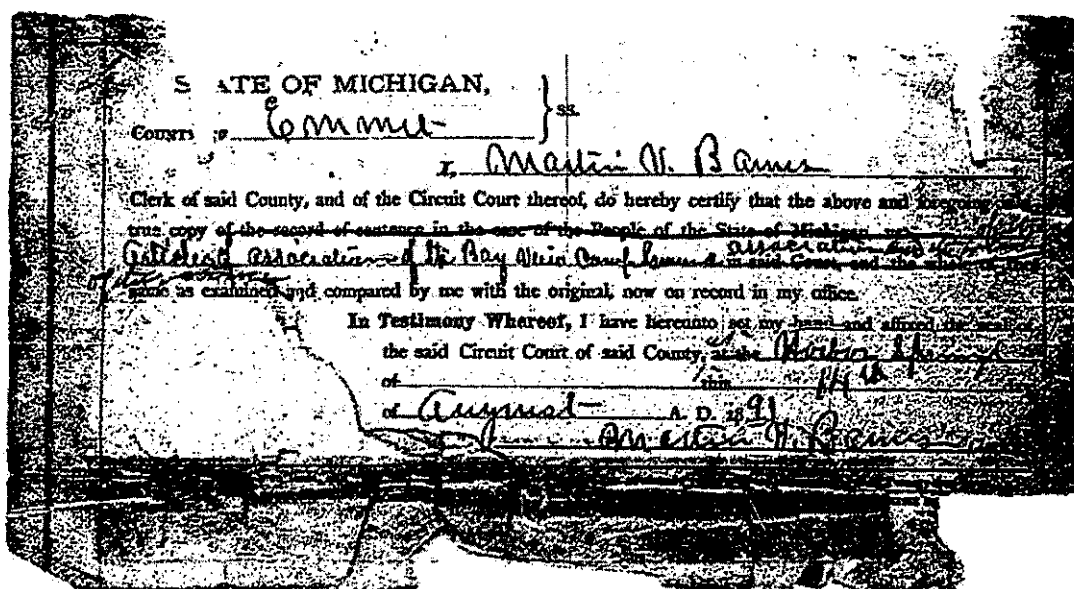 STATE OF MICHIGAN,
COUNTY OF Emmet } ss.
I, Martin V. Barnes
Clerk of said County, and of the Circuit Court thereof, do hereby certify that the above and foregoing is a
true copy of the record of sentence in the case of the People of the State of Michigan
association and
articles of association of the Bay View Camp Ground in said Court, and the whole
same as examined and compared by me with the original, now on record in my office.
In Testimony Whereof, I have hereunto set my hand and affixed the seal of
the said Circuit Court of said County, at the Harbor Springs
of this 14th
of August A. D. 1891
Martin V. Barnes